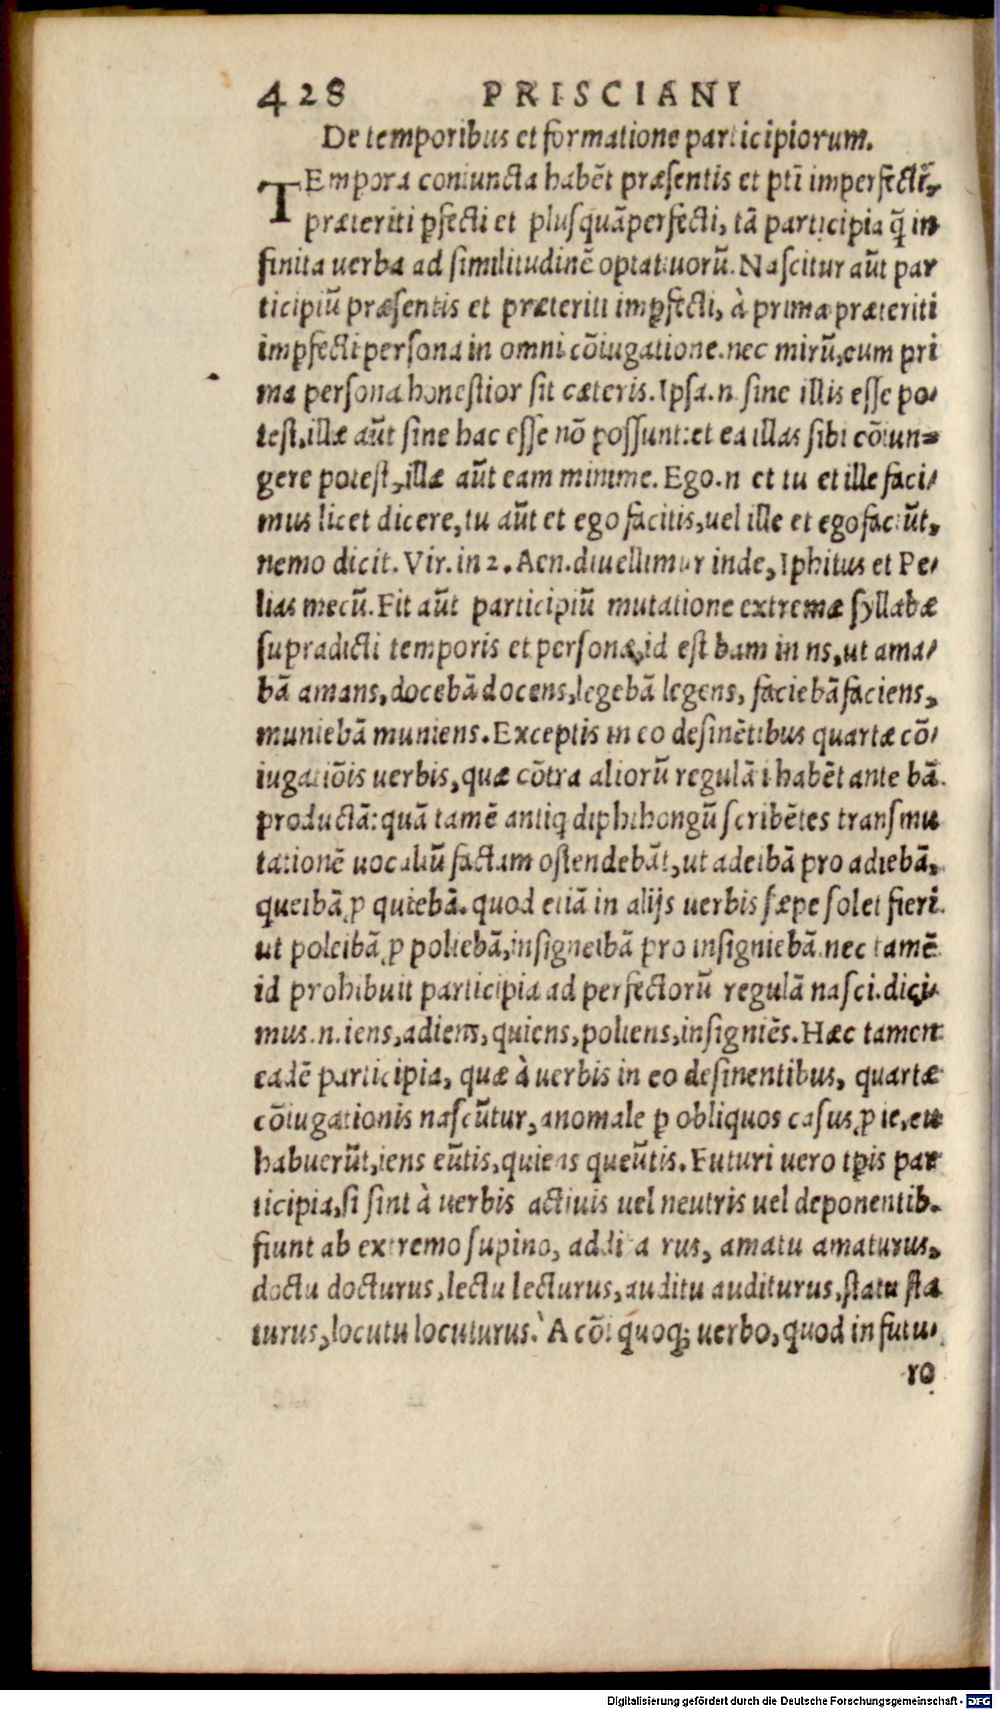 428 PRISCIANI
De temporibus et formatione participiorum.
TEmpora coniuncta habēt præsentis et ptī imperfecti,
præteriti ꝑfecti et plusquāperfecti, tā participia q̄ in
finita uerba ad similitudinē optatiuorū. Nascitur aūt par
ticipiū præsentis et præteriti imꝑfecti, à prima præteriti
imꝑfecti persona in omni cōiugatione. nec mirū, cum pri
ma persona honestior sit cæteris. Ipsa.n. sine illis esse po-
test, illæ aūt sine hac esse nō possunt: et ea illas sibi cōiun=
gere potest, illæ aūt eam minime. Ego.n et tu et ille faci-
mus licet dicere, tu aūt et ego facitis, uel ille et ego faciūt,
nemo dicit. Vir. in 2. Aen. diuellimur inde, Iphitus et Pe-
lias mecū. Fit aūt participiū mutatione extremæ syllabæ
supradicti temporis et personæ, id est bam in ns, ut ama-
bā amans, docebā docens, legebā legens, faciebā faciens,
muniebā muniens. Exceptis in eo desinētibus quartæ cō-
iugatiōis uerbis, quæ cōtra aliorū regulā i habēt ante bā
productā: quā tamē antiq diphthongū scribētes transmu
tationē uocaliū factam ostendebāt, ut adeibā pro adiebā,
queibā ꝓ quiebā. quod etiā in alijs uerbis sæpe solet fieri.
ut poleibā ꝓ poliebā, insigneibā pro insigniebā. nec tamē
id prohibuit participia ad perfectorū regulā nasci. dici-
mus.n. iens, adiens, quiens, poliens, insigniēs. Hæc tamen
eadē participia, quæ à uerbis in eo desinentibus, quartæ
cōiugationis nascūtur, anomale ꝑ obliquos casus ꝓ ie, eu
habuerūt, iens eūtis, quiens queūtis. Futuri uero tꝑis par
ticipia, si sint à uerbis actiuis uel neutris uel deponentib.
fiunt ab extremo supino, addita rus, amatu amaturus,
doctu docturus, lectu lecturus, auditu auditurus, statu sta
turus, locutu locuturus. A cōi quoq; uerbo, quod in futu-
ro
Digitalisierung gefördert durch die Deutsche Forschungsgemeinschaft - DFG